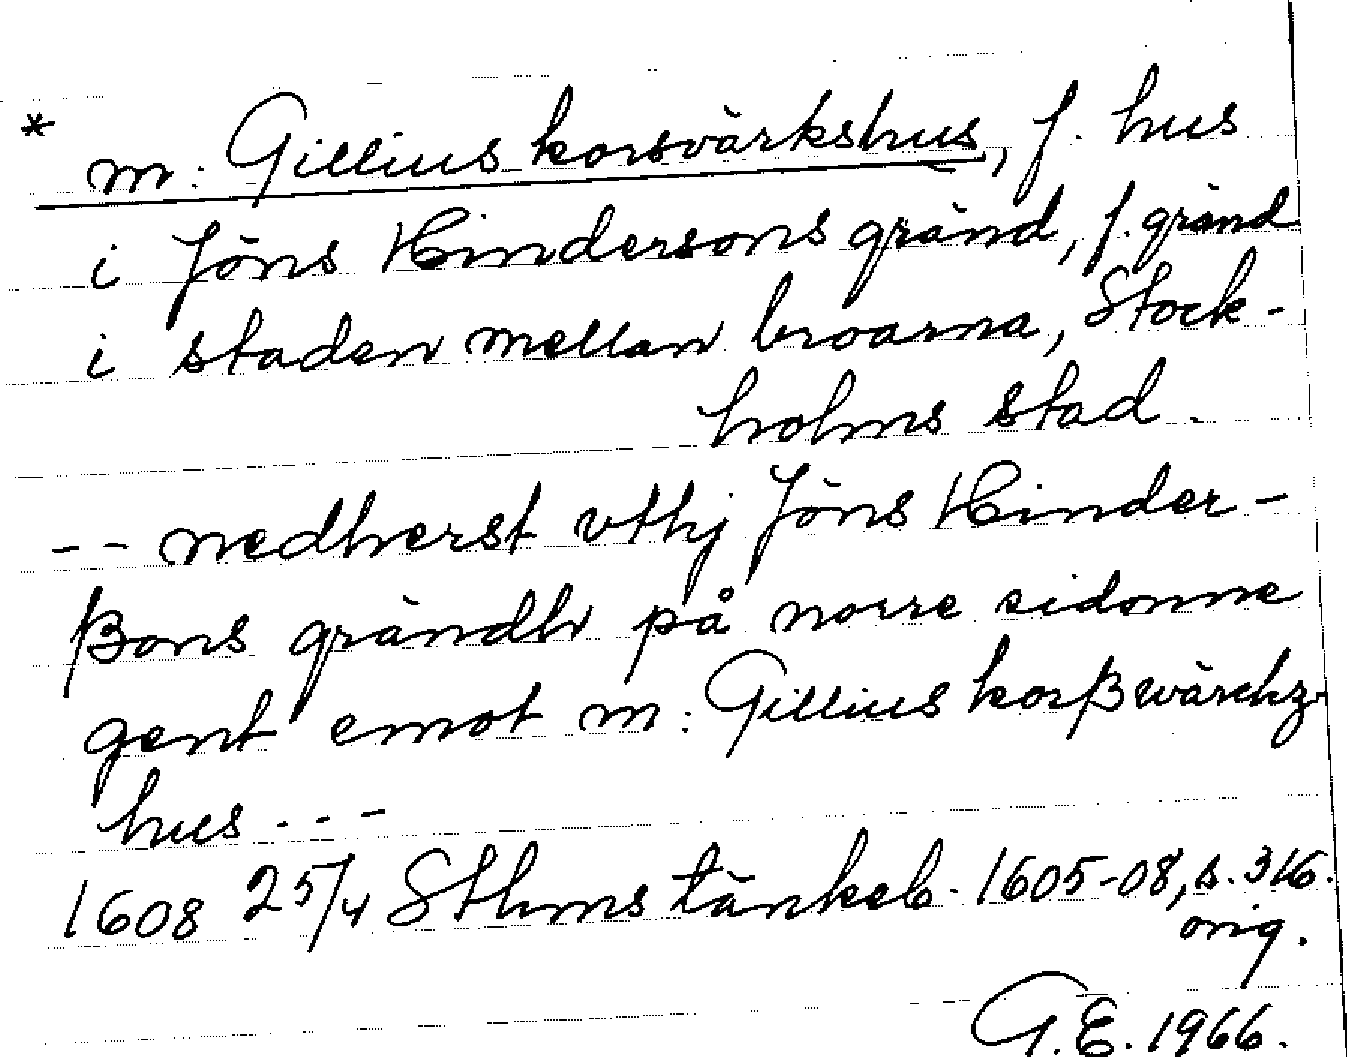 * m: Gillius korsvärkshus, f. hus
i Jöns Hindersons gränd, f. gränd
i staden mellan broarna, Stock-
holms stad.
-- nedherst vthj Jöns Hinder-
ßons grändh på norre sidonne
gent emot m: Gillius korßwärckz-
hus ---
1608 25/4 Sthms tänkeb. 1605-08, s. 316.
orig.
G.E. 1966.